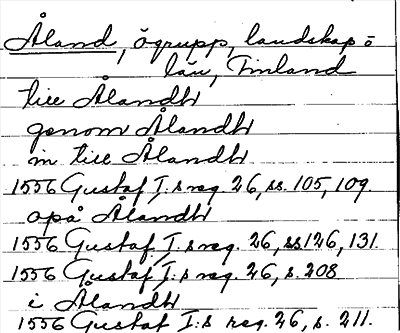 Åland, ögrupp, landskap o
län, Finland
till Ålandh
genom Ålandh
in till Ålandh
1556 Gustaf I:s reg. 26, ss. 105, 109.
opå Ålandh
1556 Gustaf I:s reg. 26, ss. 126, 131.
1556 Gustaf I:s reg. 26, s. 208
i Ålandh
1556 Gustaf I:s reg. 26, s. 211.